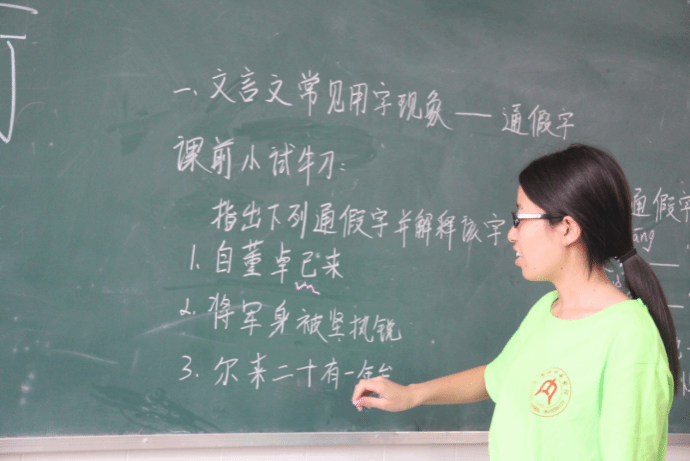 一.文言文常见用字现象——通假字
课前小试牛刀:
指出下列通假字并解释该字
1.自董卓已来
2.将军身被坚执锐
3.尔来二十有一年
通假字